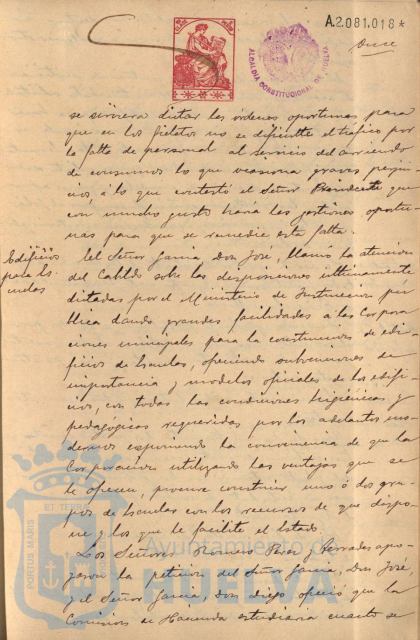 A.2.081.018*
Once
ALCALDÍA CONSTITUCIONAL DE HUELVA
se sirviera dictar las órdenes oportunas para
que en los fielatos no se dificulte el tráfico por
la falta de personal al servicio del arriendo
de consumos lo que ocasiona graves perjui-
cios, á lo que contestó el Señor Presidente que
con mucho gusto haría las gestiones oportu-
nas para que se remedie esta falta.
Edificios
para Es-
cuelas
El Señor García, Don José, llamó la atención
del Cabildo sobre las disposiciones últimamente
dictadas por el Ministerio de Instrucción pú-
blica dando grandes facilidades a las Corpora-
ciones municipales para la construcción de edi-
ficios de Escuelas, ofreciendo subvenciones de
importancia y modelos oficiales de los edifi-
cios, con todas las condiciones higiénicas y
pedagógicas requeridas por los adelantos mo-
dernos exponiendo la conveniencia de que la
Corporación utilizando las ventajas que se
le ofrecen, procure construir uno ó dos gru-
pos de Escuelas con los recursos de que dispo-
ne y los que le facilite el Estado.
Los Señores Romero Perez Terrades apo-
yaron la petición del Señor García, Don José,
y el Señor García, Don Diego ofreció que la
Comisión de Hacienda estudiaría cuanto se
PORTUS MARIS
ET TERRAE
Ayuntamiento de
HUELVA